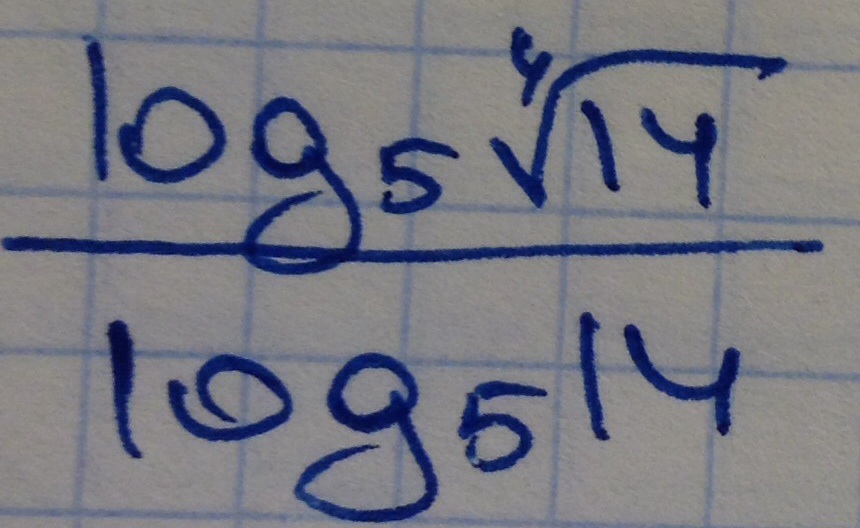 log₅ ⁴√14
log₅ 14